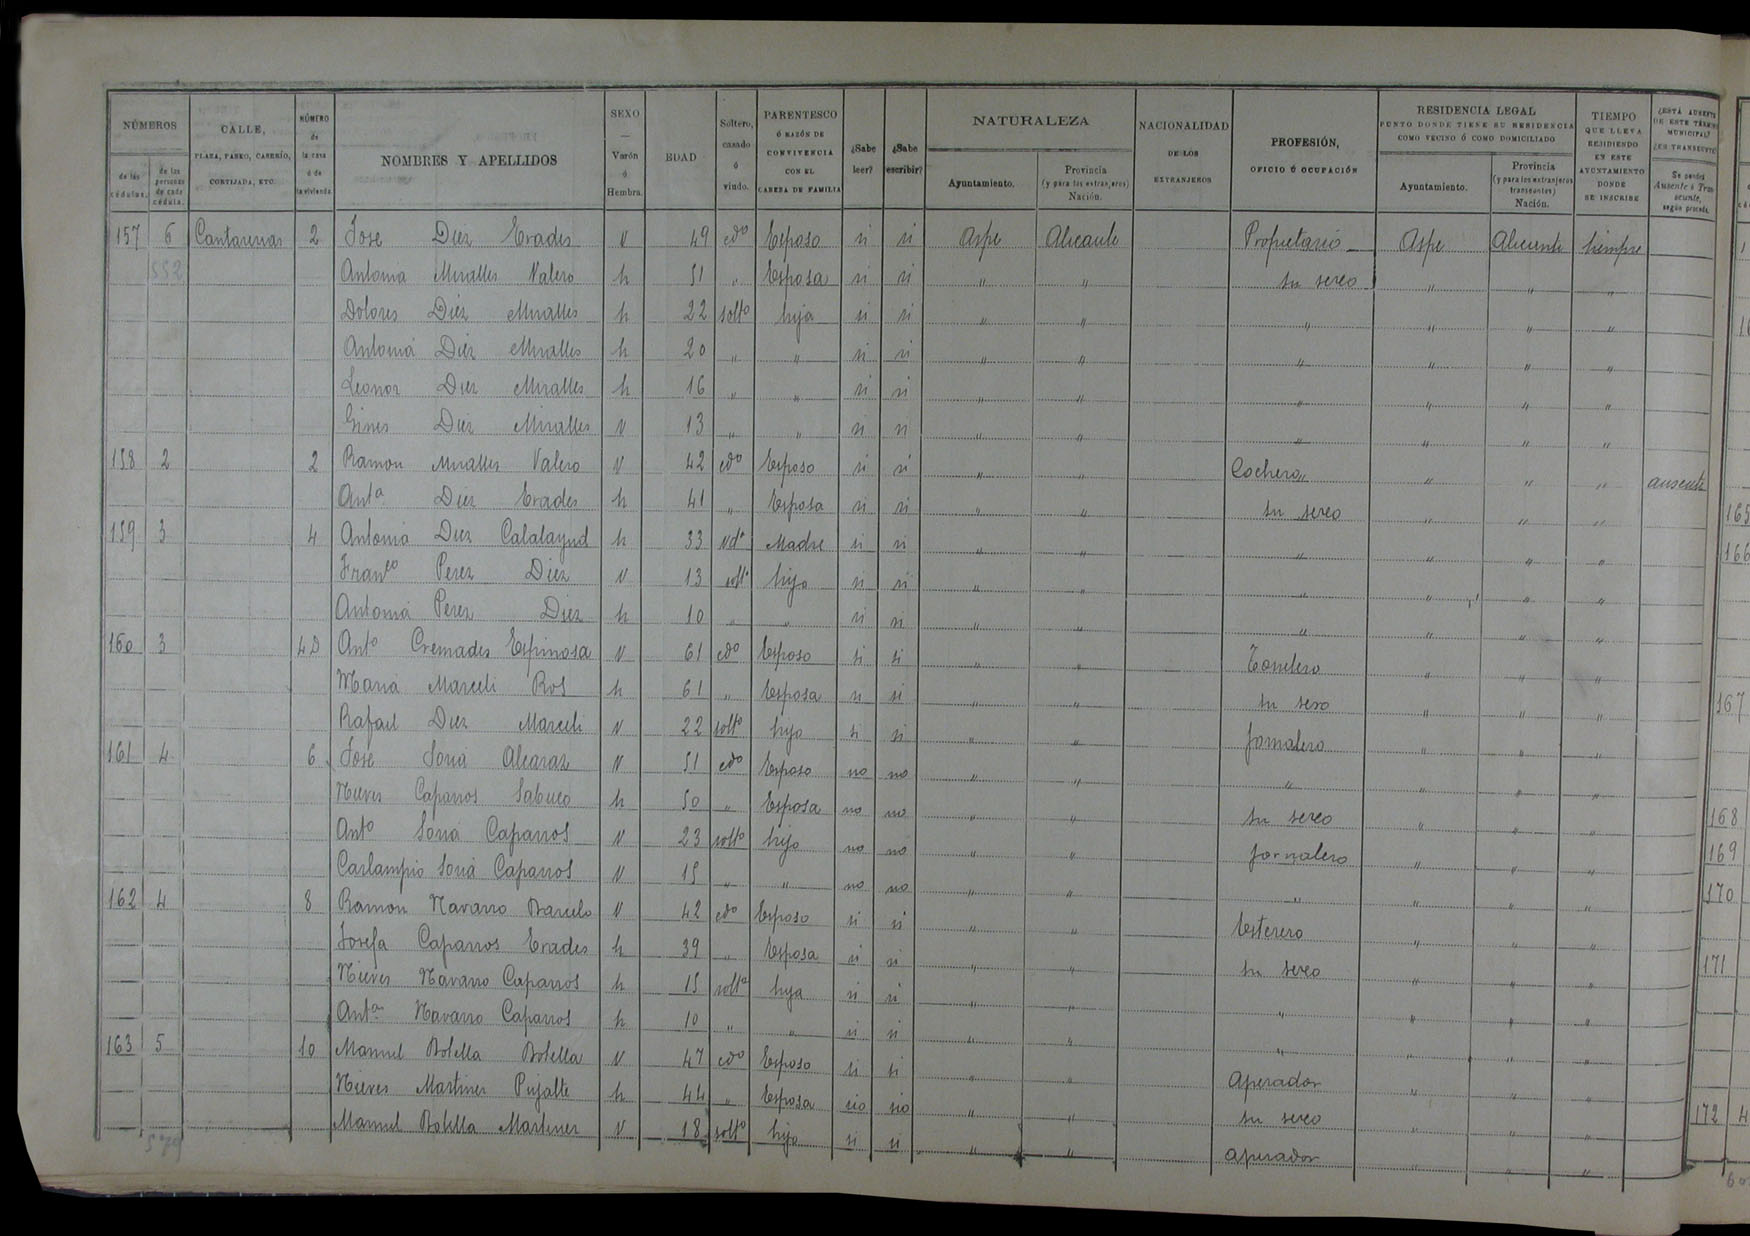 NÚMEROS
de las cédulas.
de las personas de cada cédula.
CALLE, PLAZA, PASEO, CASERÍO, CORTIJADA, ETC.
NÚMERO de la casa ó de la vivienda.
NOMBRES Y APELLIDOS
SEXO — Varón ó Hembra.
EDAD
Soltero, casado ó viudo.
PARENTESCO Ó RAZÓN DE CONVIVENCIA CON EL CABEZA DE FAMILIA
¿Sabe leer?
¿Sabe escribir?
NATURALEZA
Ayuntamiento.
Provincia (y para los extranjeros) Nación.
NACIONALIDAD DE LOS EXTRANJEROS
PROFESIÓN, OFICIO Ó OCUPACIÓN
RESIDENCIA LEGAL
PUNTO DONDE TIENE SU RESIDENCIA COMO VECINO Ó COMO DOMICILIADO
Ayuntamiento.
Provincia (y para los extranjeros transeuntes) Nación.
TIEMPO QUE LLEVA RESIDIENDO EN ESTE AYUNTAMIENTO DONDE SE INSCRIBE
¿ESTÁ AUSENTE DE ESTE TÉRMINO MUNICIPAL?
Se pondrá Ausente ó Transeunte, según proceda.
157 6 Cantarerias 2 Jose Diez Erades V 49 cdo Esposo si si Aspe Alicante Propietario Aspe Alicante Siempre
552 Antonia Miralles Valero h 51 " Esposa si si " " su sexo " " "
Dolores Diez Miralles h 22 solto hija si si " " " " " "
Antonia Diez Miralles h 20 " " si si " " " " " "
Leonor Diez Miralles h 16 " " si si " " " " " "
Gines Diez Miralles V 13 " " si si " " " " " "
158 2 2 Ramon Miralles Valero V 42 cdo Esposo si si " " Cochero " " " ausente
Anta Diez Erades h 41 " Esposa si si " " su sexo " " "
159 3 4 Antonia Diez Calatayud h 33 vda Madre si si " " " " " "
Franco Perez Diez V 13 solto hijo si si " " " " " "
Antonia Perez Diez h 10 " " si si " " " " " "
160 3 4D Anto Cremades Espinosa V 61 cdo Esposo si si " " Tonelero " " "
Maria Marceli Ros h 61 " Esposa si si " " su sexo " " "
Rafael Diez Marceli V 22 solto hijo si si " " Jornalero " " "
161 4 6 Jose Soria Alcaraz V 51 cdo Esposo no no " " " " " "
Nieves Caparros Sabuco h 50 " Esposa no no " " su sexo " " "
Anto Soria Caparros V 23 solto hijo no no " " Jornalero " " "
Carlampio Soria Caparros V 15 " " no no " " " " " "
162 4 8 Ramon Navarro Barcelo V 42 cdo Esposo si si " " Esterero " " "
Josefa Caparros Erades h 39 " Esposa si si " " su sexo " " "
Nieves Navarro Caparros h 15 solta hija si si " " " " " "
Anta Navarro Caparros h 10 " " si si " " " " " "
163 5 10 Manuel Botella Botella V 47 cdo Esposo si si " " Aperador " " "
Nieves Martinez Pujalte h 44 " Esposa " " su sexo " " "
Manuel Botella Martinez V 18 solto hijo si si " " aperador " " "
165
166
167
168
169
170
171
172 4